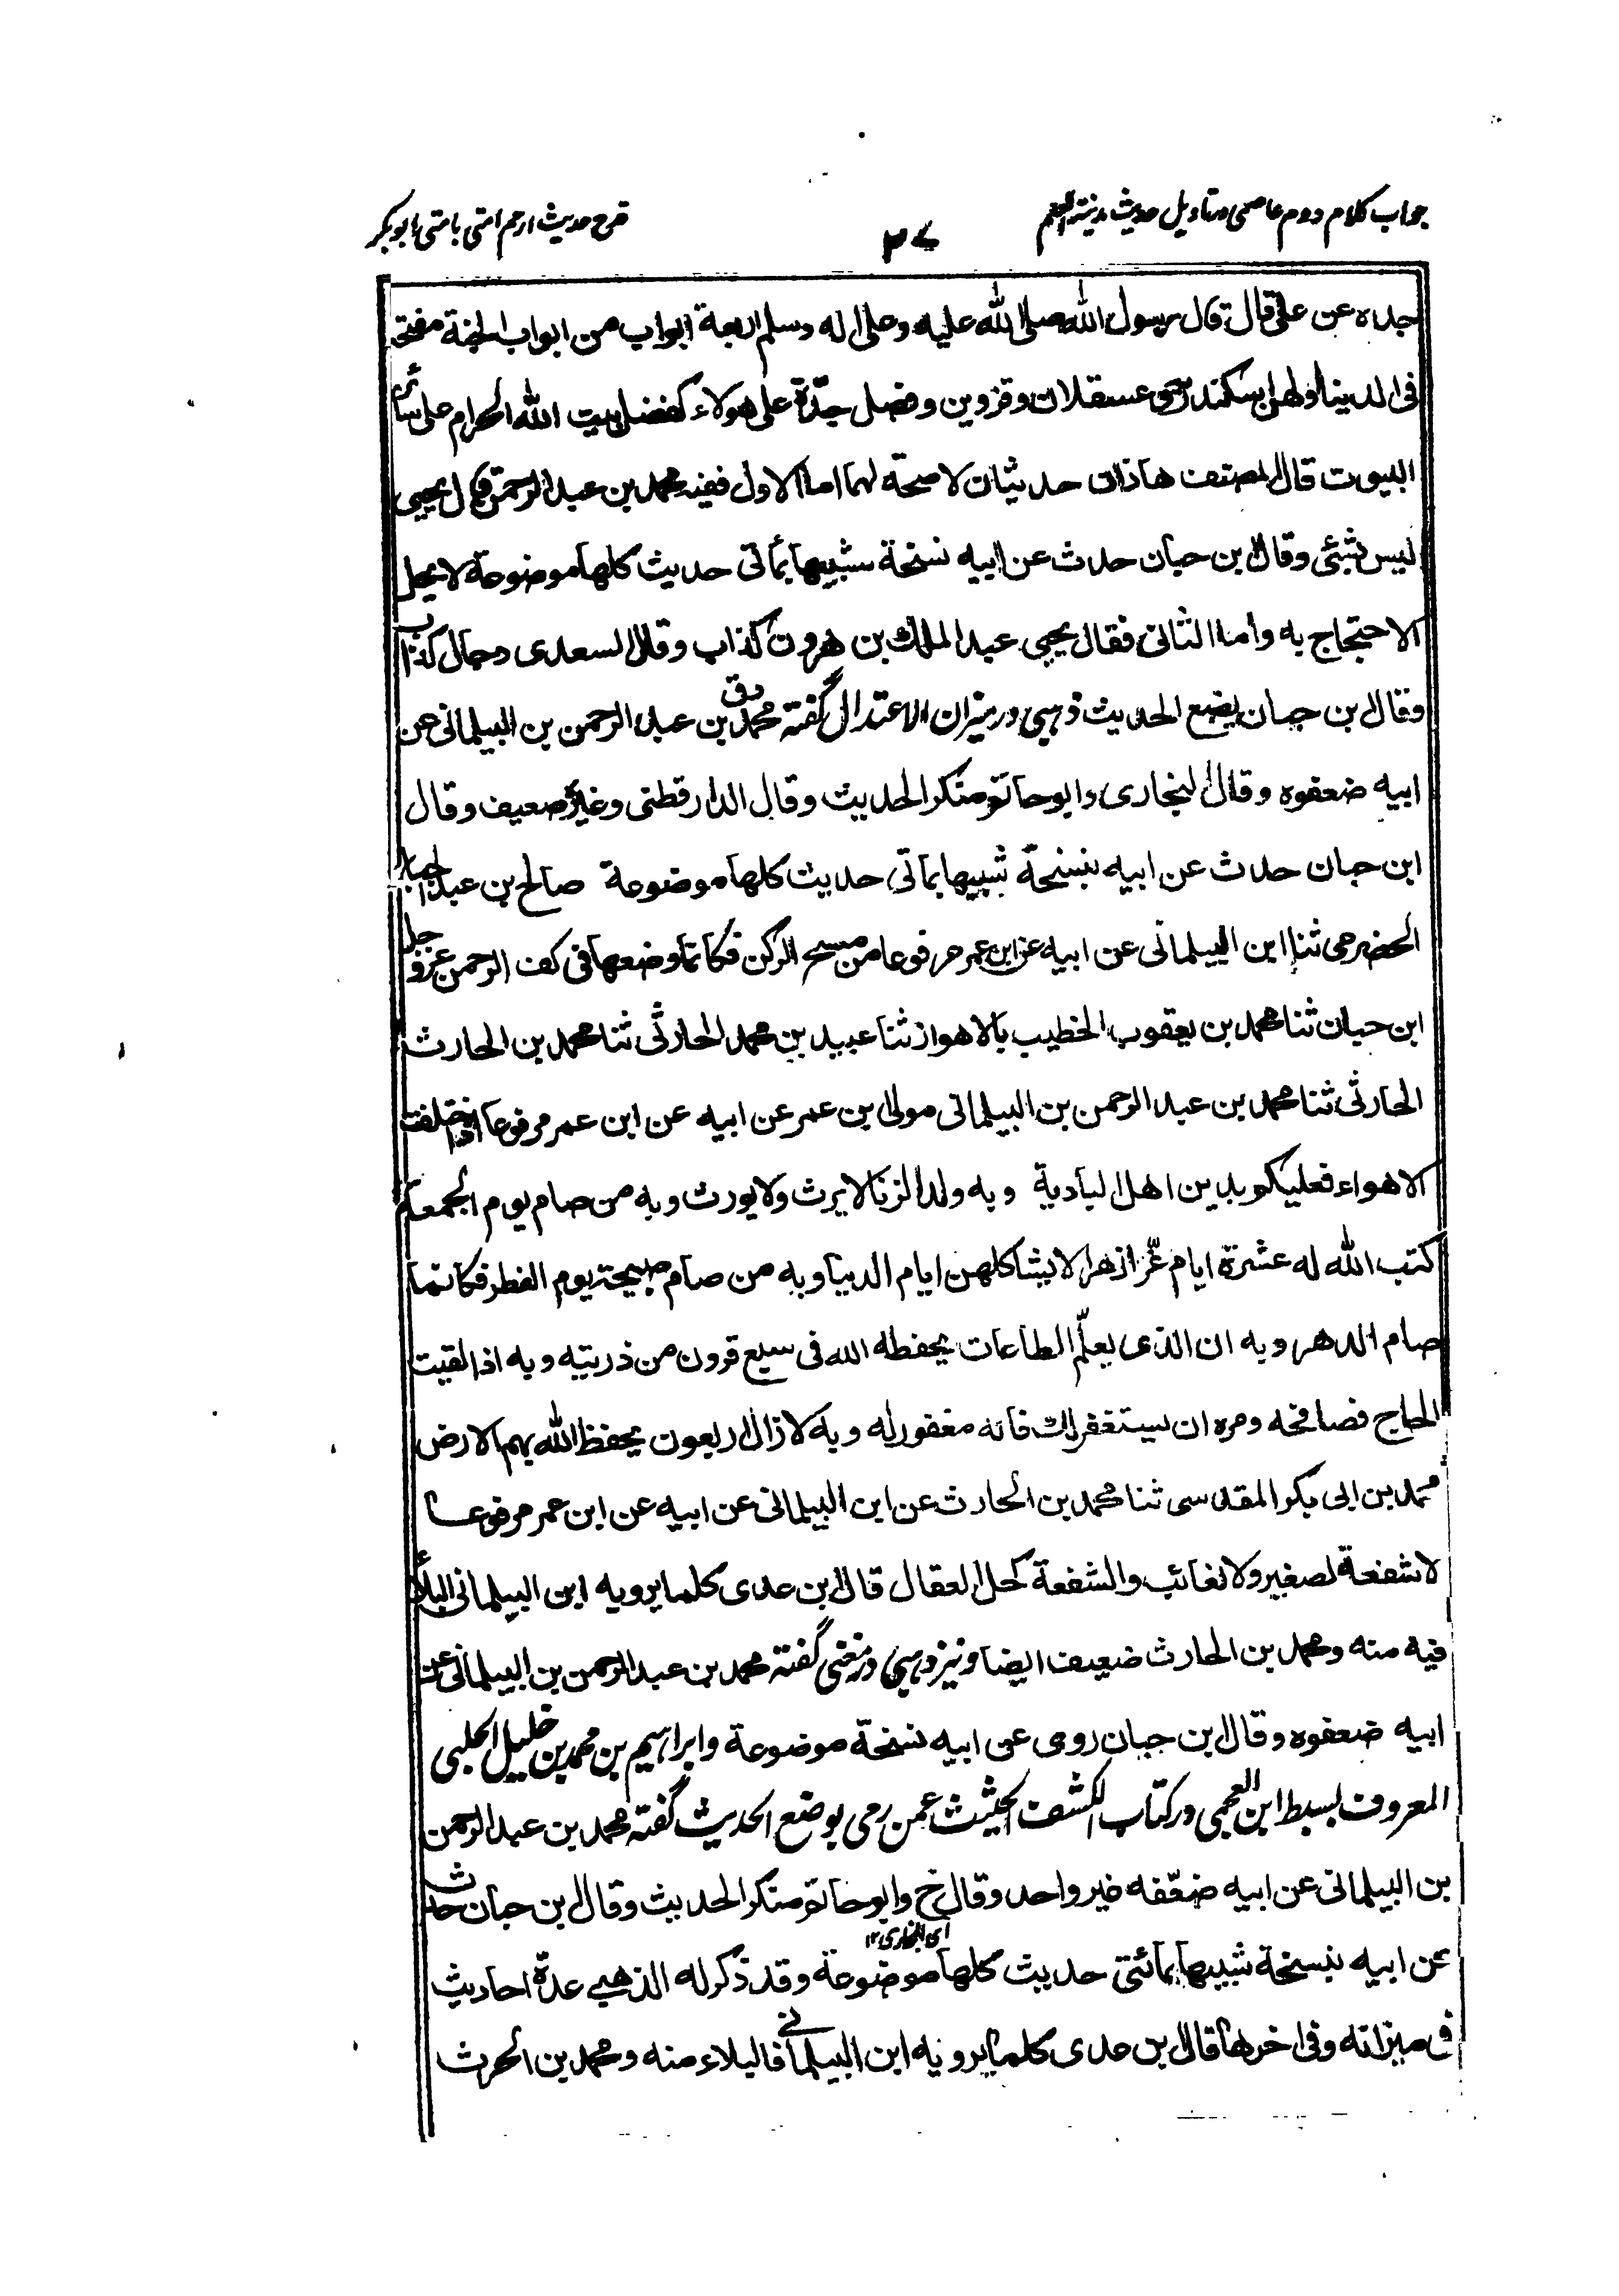 جواب کلام دوم عاصمی در تاویل حدیث مدینة العلم
۳۷
قدح حدیث ارحم امتی بامتی ابوبکر
جده عن علی قال قال رسول الله صلی الله علیه وعلی اله وسلم اربعة ابواب من ابواب الجنة مفتحة
فی الدینا اولهن اسکندریة وعسقلان وقزوین وفضل جدّة علی هولاء کفضل بیت الله الحرام علی سائر
البیوت قال المصنف هاذان حدیثان لا صحة لهما اما الاول ففیه محمد بن عبد الرحمن قال یحیی
لیس بشیئ وقال ابن حبان حدث عن ابیه نسخة شبیها بمأتی حدیث کلها موضوعة لا یحل
الاحتجاج به واما الثانی فقال یحیی عبد الملک بن هرون کذاب وقال السعدی دجال کذاب
وقال ابن حبان یضع الحدیث ذهبی در میزان الاعتدال گفته محمد بن عبد الرحمن بن البیلمانی عن
دق
ابیه ضعفوه وقال البخاری وابو حاتم منکر الحدیث وقال الدار قطنی وغیره ضعیف وقال
ابن حبان حدث عن ابیه بنسخة شبیها بمأتی حدیث کلها موضوعة صالح بن عبد الجبار
الحضرمی ثنا ابن البیلمانی عن ابیه عن ابن عمر مرفوعا من مسح الرکن فکانما وضعها فی کف الرحمن عز وجل
ابن حبان ثنا محمد بن یعقوب الخطیب بالاهواز ثنا عبید بن محمد الحارثی ثنا محمد بن الحارث
الحارثی ثنا محمد بن عبد الرحمن بن البیلمانی مولی ابن عمر عن ابیه عن ابن عمر مرفوعا اذا اختلفت
الاهواء فعلیکم بدین اهل البادیة وبه ولد الزنا لا یرث ولا یورث وبه من صام یوم الجمعة
کتب الله له عشرة ایام غرّ ازهر لا یشاکلهن ایام الدنیا وبه من صام صبیحة یوم الفطر فکانما
صام الدهر وبه ان الذی یعلّم الطاعات یحفظه الله فی سبع قرون من ذریته وبه اذا لقیت
الحاج فصافحه ومره ان یستغفر لک فانه مغفور له وبه لا زال اربعون یحفظ الله بهم الارض
محمد بن ابی بکر المقدسی ثنا محمد بن الحارث عن ابن البیلمانی عن ابیه عن ابن عمر مرفوعا
لا شفعة لصغیر ولا لغائب والشفعة کحل العقال قال ابن عدی کلما یرویه ابن البیلمانی البلاء
فیه منه ومحمد بن الحارث ضعیف ایضا ونیز ذهبی در مغنی گفته محمد بن عبد الرحمن بن البیلمانی عن
ابیه ضعفوه وقال ابن حبان روی عن ابیه نسخة موضوعة وابراهیم بن محمد بن خلیل الحلبی
المعروف بسبط ابن العجمی در کتاب الکشف الحثیث عمن رمی بوضع الحدیث گفته محمد بن عبد الرحمن
بن البیلمانی عن ابیه ضعّفه غیر واحد وقال خ وابو حاتم منکر الحدیث وقال ابن حبان حدث
ای البخاری ۱۲
عن ابیه بنسخة شبیها بمائتی حدیث کلها موضوعة وقد ذکر له الذهبی عدة احادیث
فی میزانه وفی اخرها قال ابن عدی کلما یرویه ابن البیلمانی فالبلاء منه ومحمد بن الحرث